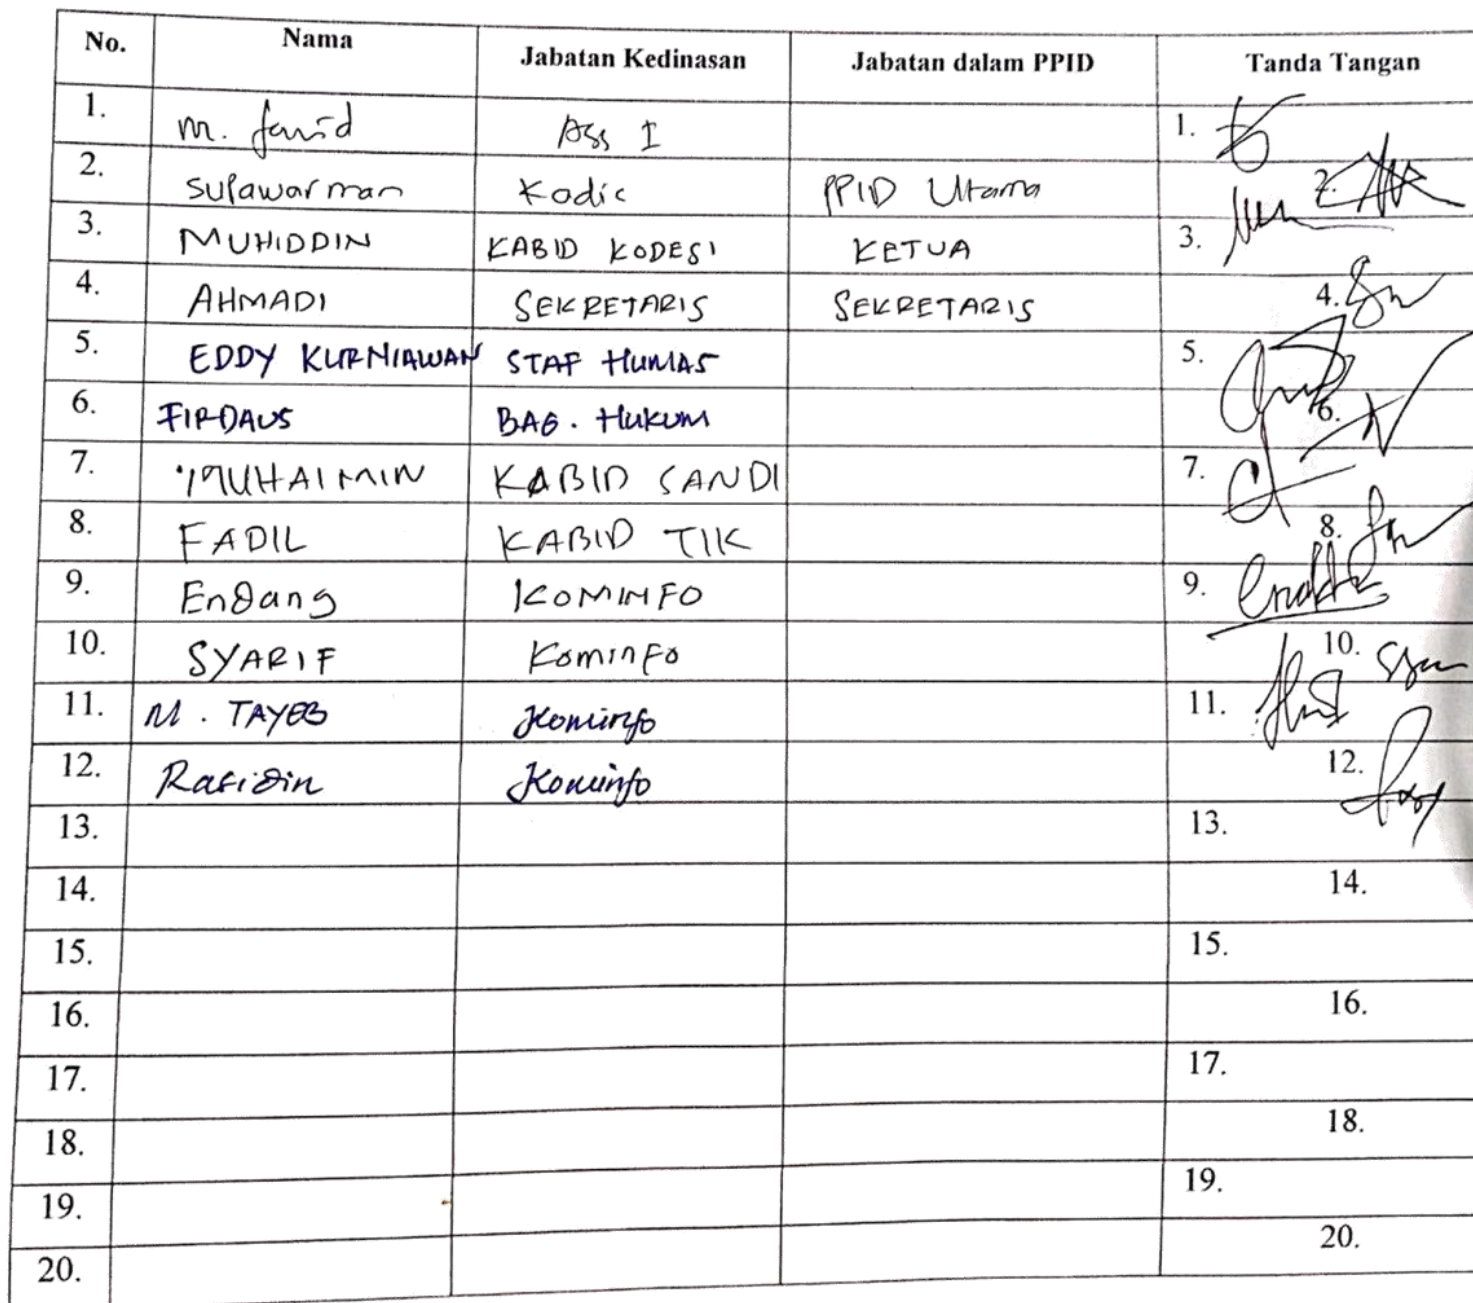 No. Nama Jabatan Kedinasan Jabatan dalam PPID Tanda Tangan
1. M. farid Ass I 1.
2. Supawarman Kadis PPID Utama 2.
3. MUHIDDIN KABID KODESI KETUA 3.
4. AHMADI SEKRETARIS SEKRETARIS 4.
5. EDDY KURNIAWAN STAF HUMAS 5.
6. FIRDAUS BAG. HUKUM 6.
7. MUHAIMIN KABID SANDI 7.
8. FADIL KABID TIK 8.
9. Endang KOMINFO 9.
10. SYARIF KominFo 10.
11. M. TAYEB Kominfo 11.
12. Rafidin Kominfo 12.
13. 13.
14. 14.
15. 15.
16. 16.
17. 17.
18. 18.
19. 19.
20. 20.